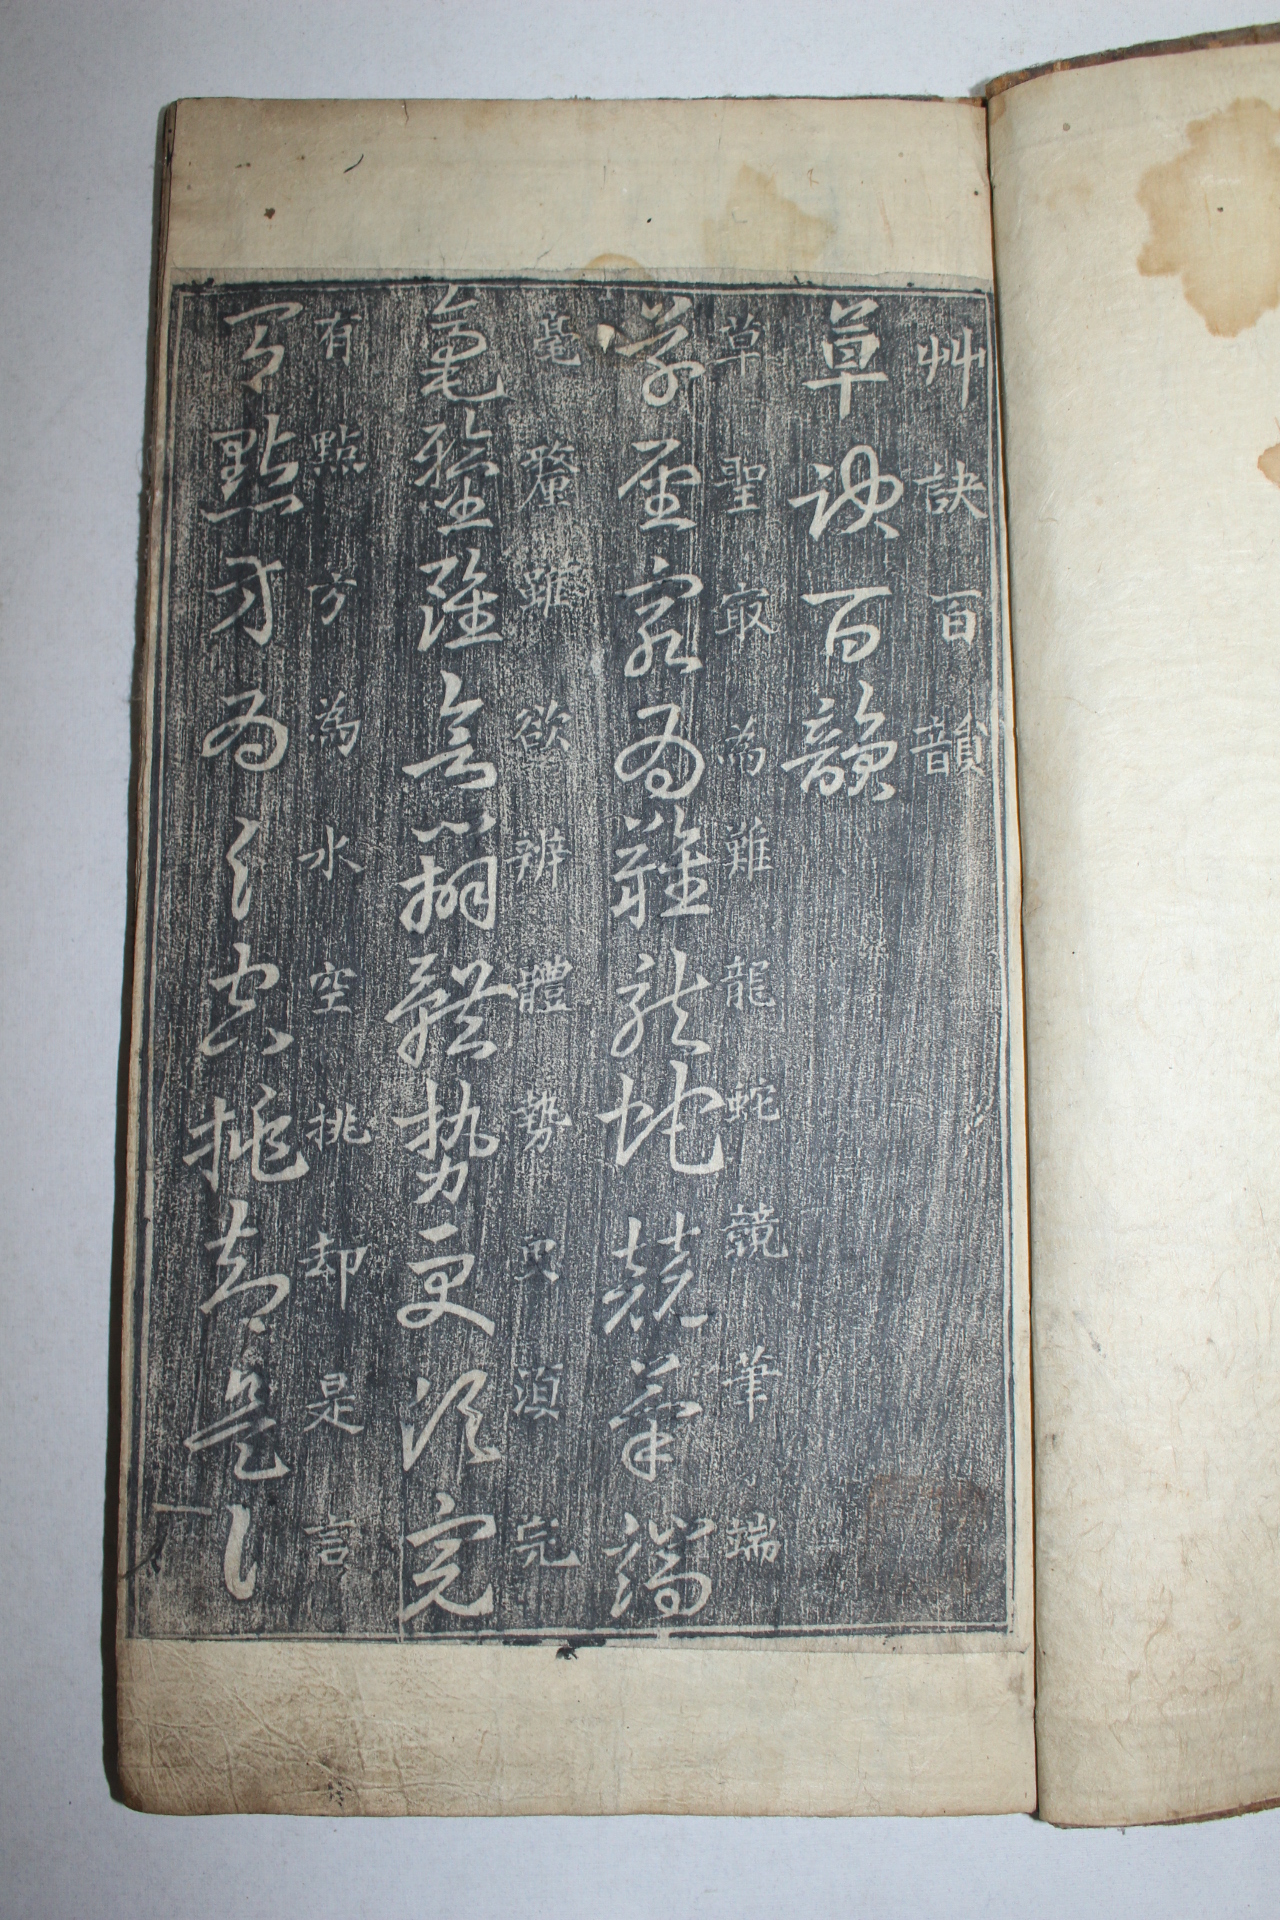 艸訣百韻
草訣百韻
草聖㝡為難龍蛇競筆端
草聖㝡為難龍蛇競筆端
毫釐雖欲辨體勢更須完
毫釐雖欲辨體勢更須完
有點方為水空挑却是言
有點方為水空挑却是言